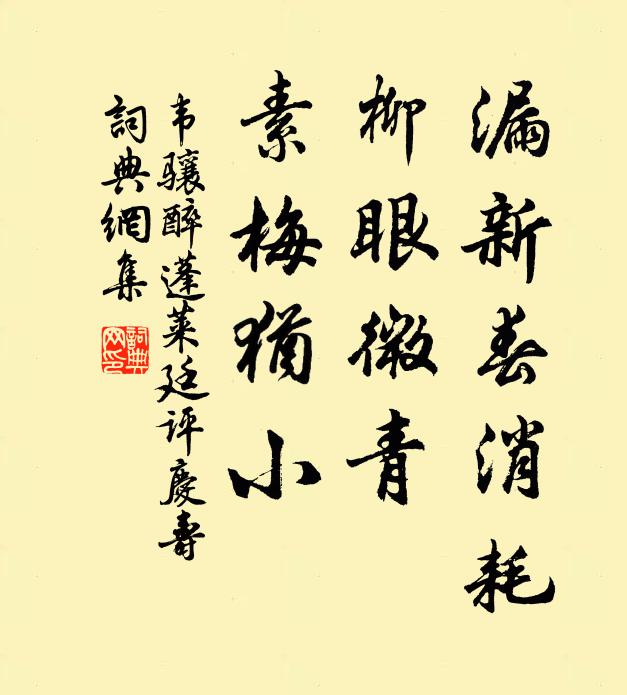 漏新春消耗
柳眼微青
素梅猶小
韦骧醉蓬莱廷评慶壽
詞典網集
詞典网印